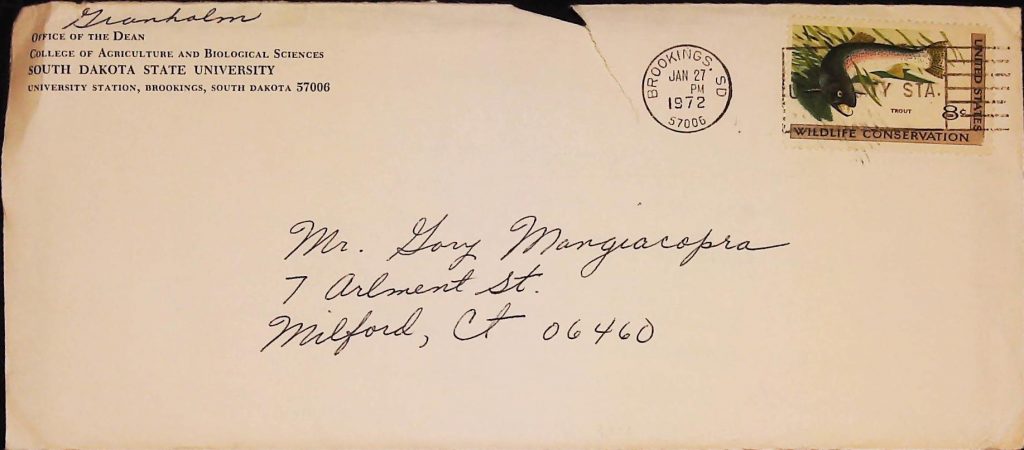 Granholm
OFFICE OF THE DEAN
COLLEGE OF AGRICULTURE AND BIOLOGICAL SCIENCES
SOUTH DAKOTA STATE UNIVERSITY
UNIVERSITY STATION, BROOKINGS, SOUTH DAKOTA 57006
BROOKINGS, SD
JAN 27
PM
1972
57006
UNITED STATES
STA.
TROUT
8c
WILDLIFE CONSERVATION
Mr. Gary Mangiacopra
7 Arlment St.
Milford, Ct 06460